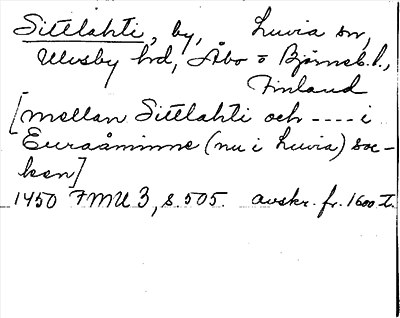 Sittlahti, by, Luvia sn,
Ulvsby hd, Åbo o Björneb. l.,
Finland
[mellan Sittlahti och ---- i
Euraåminne (nu i Luvia) soc-
ken]
1450 FMU 3, s. 505. avskr. fr. 1600 t.